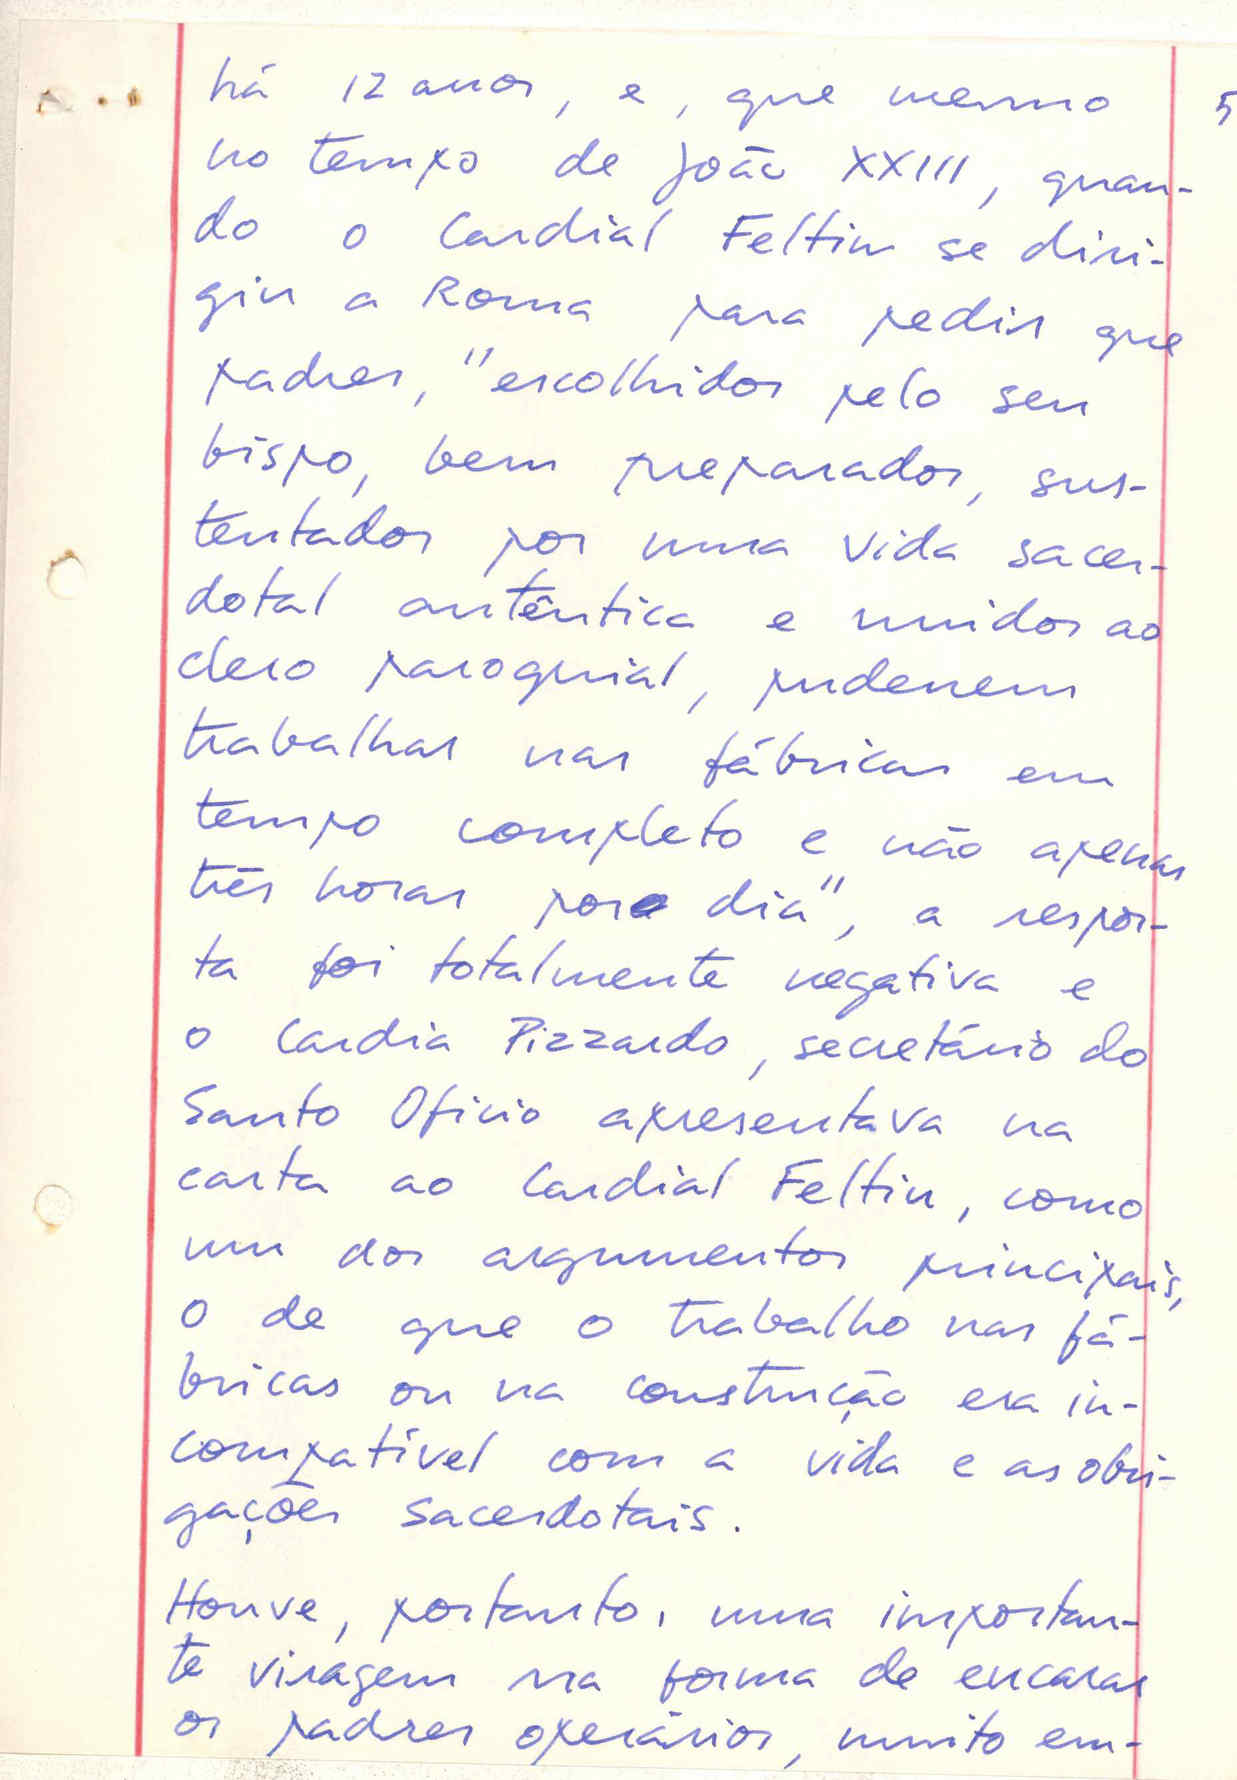 há 12 anos, e, que mesmo 5
no tempo de João XXIII, quan-
do o Cardial Feltin se diri-
giu a Roma para pedir que
padres, "escolhidos pelo seu
bispo, bem preparados, sus-
tentados por uma vida sacer-
dotal autêntica e unidos ao
clero paroquial, puderem
trabalhar nas fábricas em
tempo completo e não apenas
três horas por dia", a respos-
ta foi totalmente negativa e
o Cardia Pizzardo, secretário do
Santo Oficio apresentava na
carta ao Cardial Feltin, como
um dos argumentos principais,
o de que o trabalho nas fá-
bricas ou na construção era in-
compatível com a vida e as obri-
gações sacerdotais.
Houve, portanto, uma importan-
te viragem na forma de encarar
os padres operários, muito em-